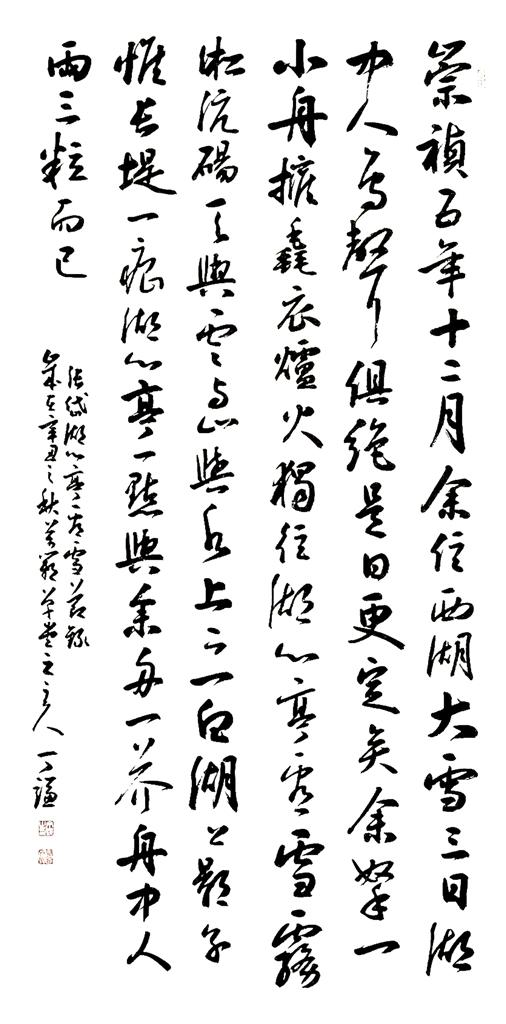 崇禎五年十二月余住西湖大雪三日湖
中人鳥聲俱絕是日更定矣余拏一
小舟擁毳衣爐火獨往湖心亭看雪霧
淞沆碭天與雲與山與水上下一白湖上影子
惟長堤一痕湖心亭一點與余舟一芥舟中人
兩三粒而已
張岱湖心亭看雪節錄
歲在辛丑之秋草堂之主人丁謙